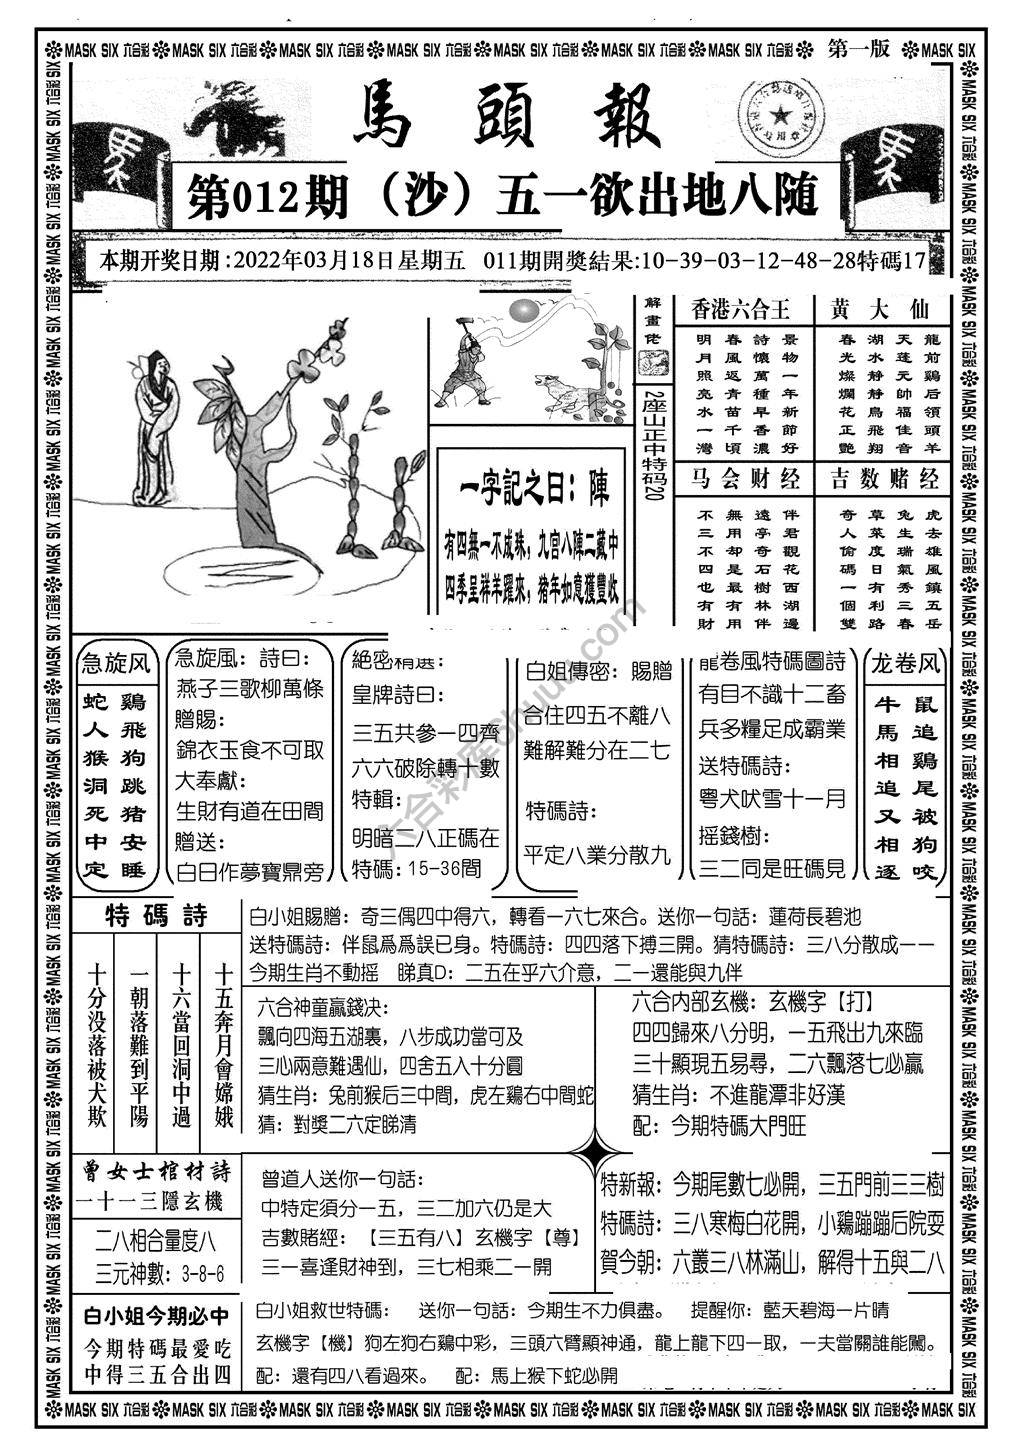 MASK SIX 六合彩 MASK SIX 六合彩 MASK SIX 六合彩 MASK SIX 六合彩 MASK SIX 六合彩 MASK SIX 六合彩 MASK SIX 六合彩 第一版 MASK SIX
馬頭報
第012期（沙）五一欲出地八随
本期开奖日期:2022年03月18日星期五 011期開獎結果:10-39-03-12-48-28特碼17
解畫佬
2座山正中特码20
一字記之日：陣
有四無一不成珠，九宮八陣二藏中
四季呈祥羊躍來，猪年如意獲豐收
香港六合王
明月照亮水一灣
春風返青苗千頃
詩懷萬種早香濃
景物一年新節好
黃大仙
春光燦爛花正艷
湖水静静鳥飛翔
天蓬元帥福佳音
龍前鷄后領頭羊
马会财经
不三不四也有財
無用却是最有用
遠亭奇石樹林伴
伴君觀花西湖邊
吉数赌经
奇人偷碼一個雙
草菜度日有利路
兔生瑞氣秀三春
虎去雄風鎮五岳
急旋风
蛇人猴洞死中定
鷄飛狗跳猪安睡
急旋風：詩曰：
燕子三歌柳萬條
贈賜：
錦衣玉食不可取
大奉獻：
生財有道在田間
贈送：
白日作夢寶鼎旁
絶密精選：
皇牌詩曰：
三五共參一四齊
六六破除轉十數
特輯：
明暗二八正碼在
特碼：15-36間
白姐傳密：賜贈
合住四五不離八
難解難分在二七
特碼詩：
平定八業分散九
龍卷風特碼圖詩
有目不識十二畜
兵多糧足成霸業
送特碼詩：
粤犬吠雪十一月
摇錢樹：
三二同是旺碼見
龙卷风
牛馬相追又相逐
鼠追鷄尾被狗咬
特碼詩
十分没落被犬欺
一朝落難到平陽
十六當回洞中過
十五奔月會嫦娥
白小姐賜贈：奇三偶四中得六，轉看一六七來合。送你一句話：蓮荷長碧池
送特碼詩：伴鼠爲爲誤已身。特碼詩：四四落下搏三開。猜特碼詩：三八分散成一一
今期生肖不動摇 睇真D：二五在乎六介意，二一還能與九伴
六合神童贏錢决：
飄向四海五湖裏，八步成功當可及
三心兩意難遇仙，四舍五入十分圓
猜生肖：兔前猴后三中間，虎左鷄右中間蛇
猜：對獎二六定睇清
六合内部玄機：玄機字【打】
四四歸來八分明，一五飛出九來臨
三十顯現五易尋，二六飄落七必贏
猜生肖：不進龍潭非好漢
配：今期特碼大門旺
曾女士棺材詩
一十一三隱玄機
二八相合量度八
三元神數：3-8-6
曾道人送你一句話：
中特定須分一五，三二加六仍是大
吉數賭經：【三五有八】玄機字【尊】
三一喜逢財神到，三七相乘二一開
特新報：今期尾數七必開，三五門前三三樹
特碼詩：三八寒梅白花開，小鷄蹦蹦后院耍
賀今朝：六叢三八林滿山，解得十五與二八
白小姐今期必中
今期特碼最愛吃
中得三五合出四
白小姐救世特碼： 送你一句話：今期生不力俱盡。 提醒你：藍天碧海一片晴
玄機字【機】狗左狗右鷄中彩，三頭六臂顯神通，龍上龍下四一取，一夫當關誰能闖。
配：還有四八看過來。 配：馬上猴下蛇必開
MASK SIX 六合彩 MASK SIX 六合彩 MASK SIX 六合彩 MASK SIX 六合彩 MASK SIX 六合彩 MASK SIX 六合彩 MASK SIX 六合彩 MASK SIX 六合彩 MASK SIX